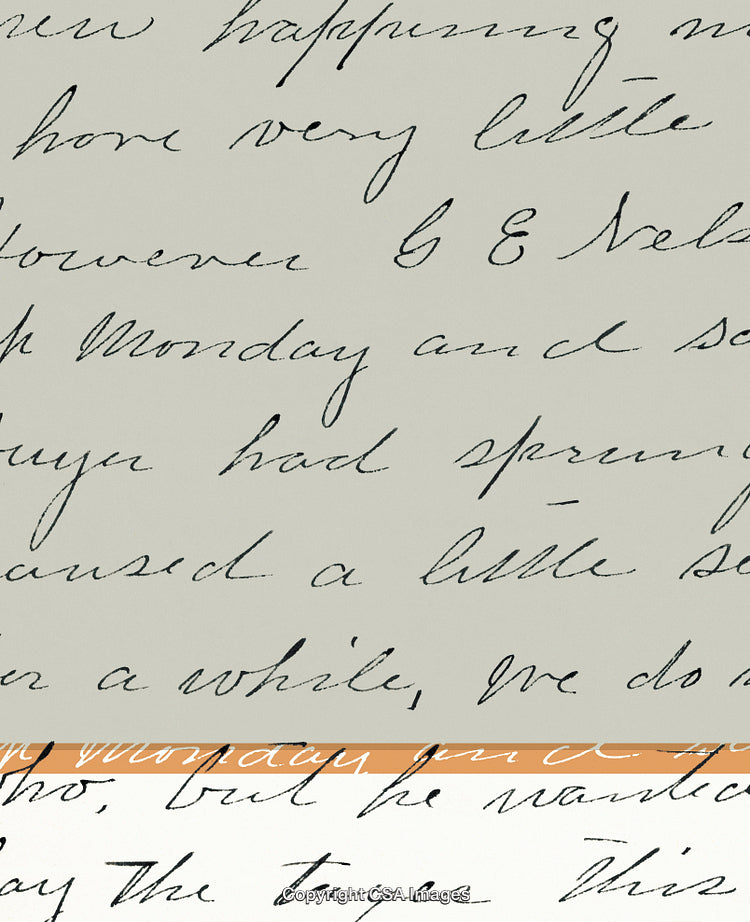 happening
have very little
However G E Nels
p Monday and so
buyer had sprung
aused a little se
er a while, We do n
p Monday and so
who, but he wanted
ay the taxes This
Copyright CSA Images